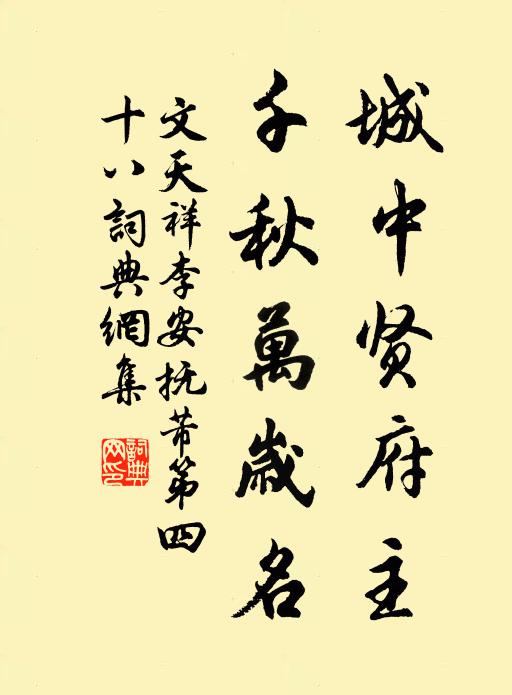 城中贤府主
千秋萬歲名
文天祥李安抚芾第四
十八詞典網集
詞典
网印